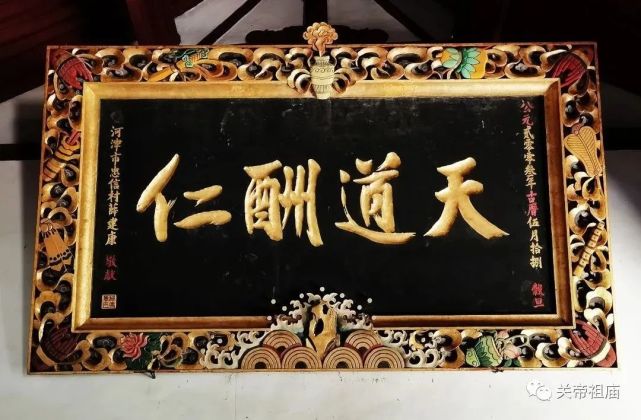 公元贰零零叁年古曆伍月拾捌 穀旦
天道酬仁
河津市忠信村薛建康 敬献
关帝祖庙